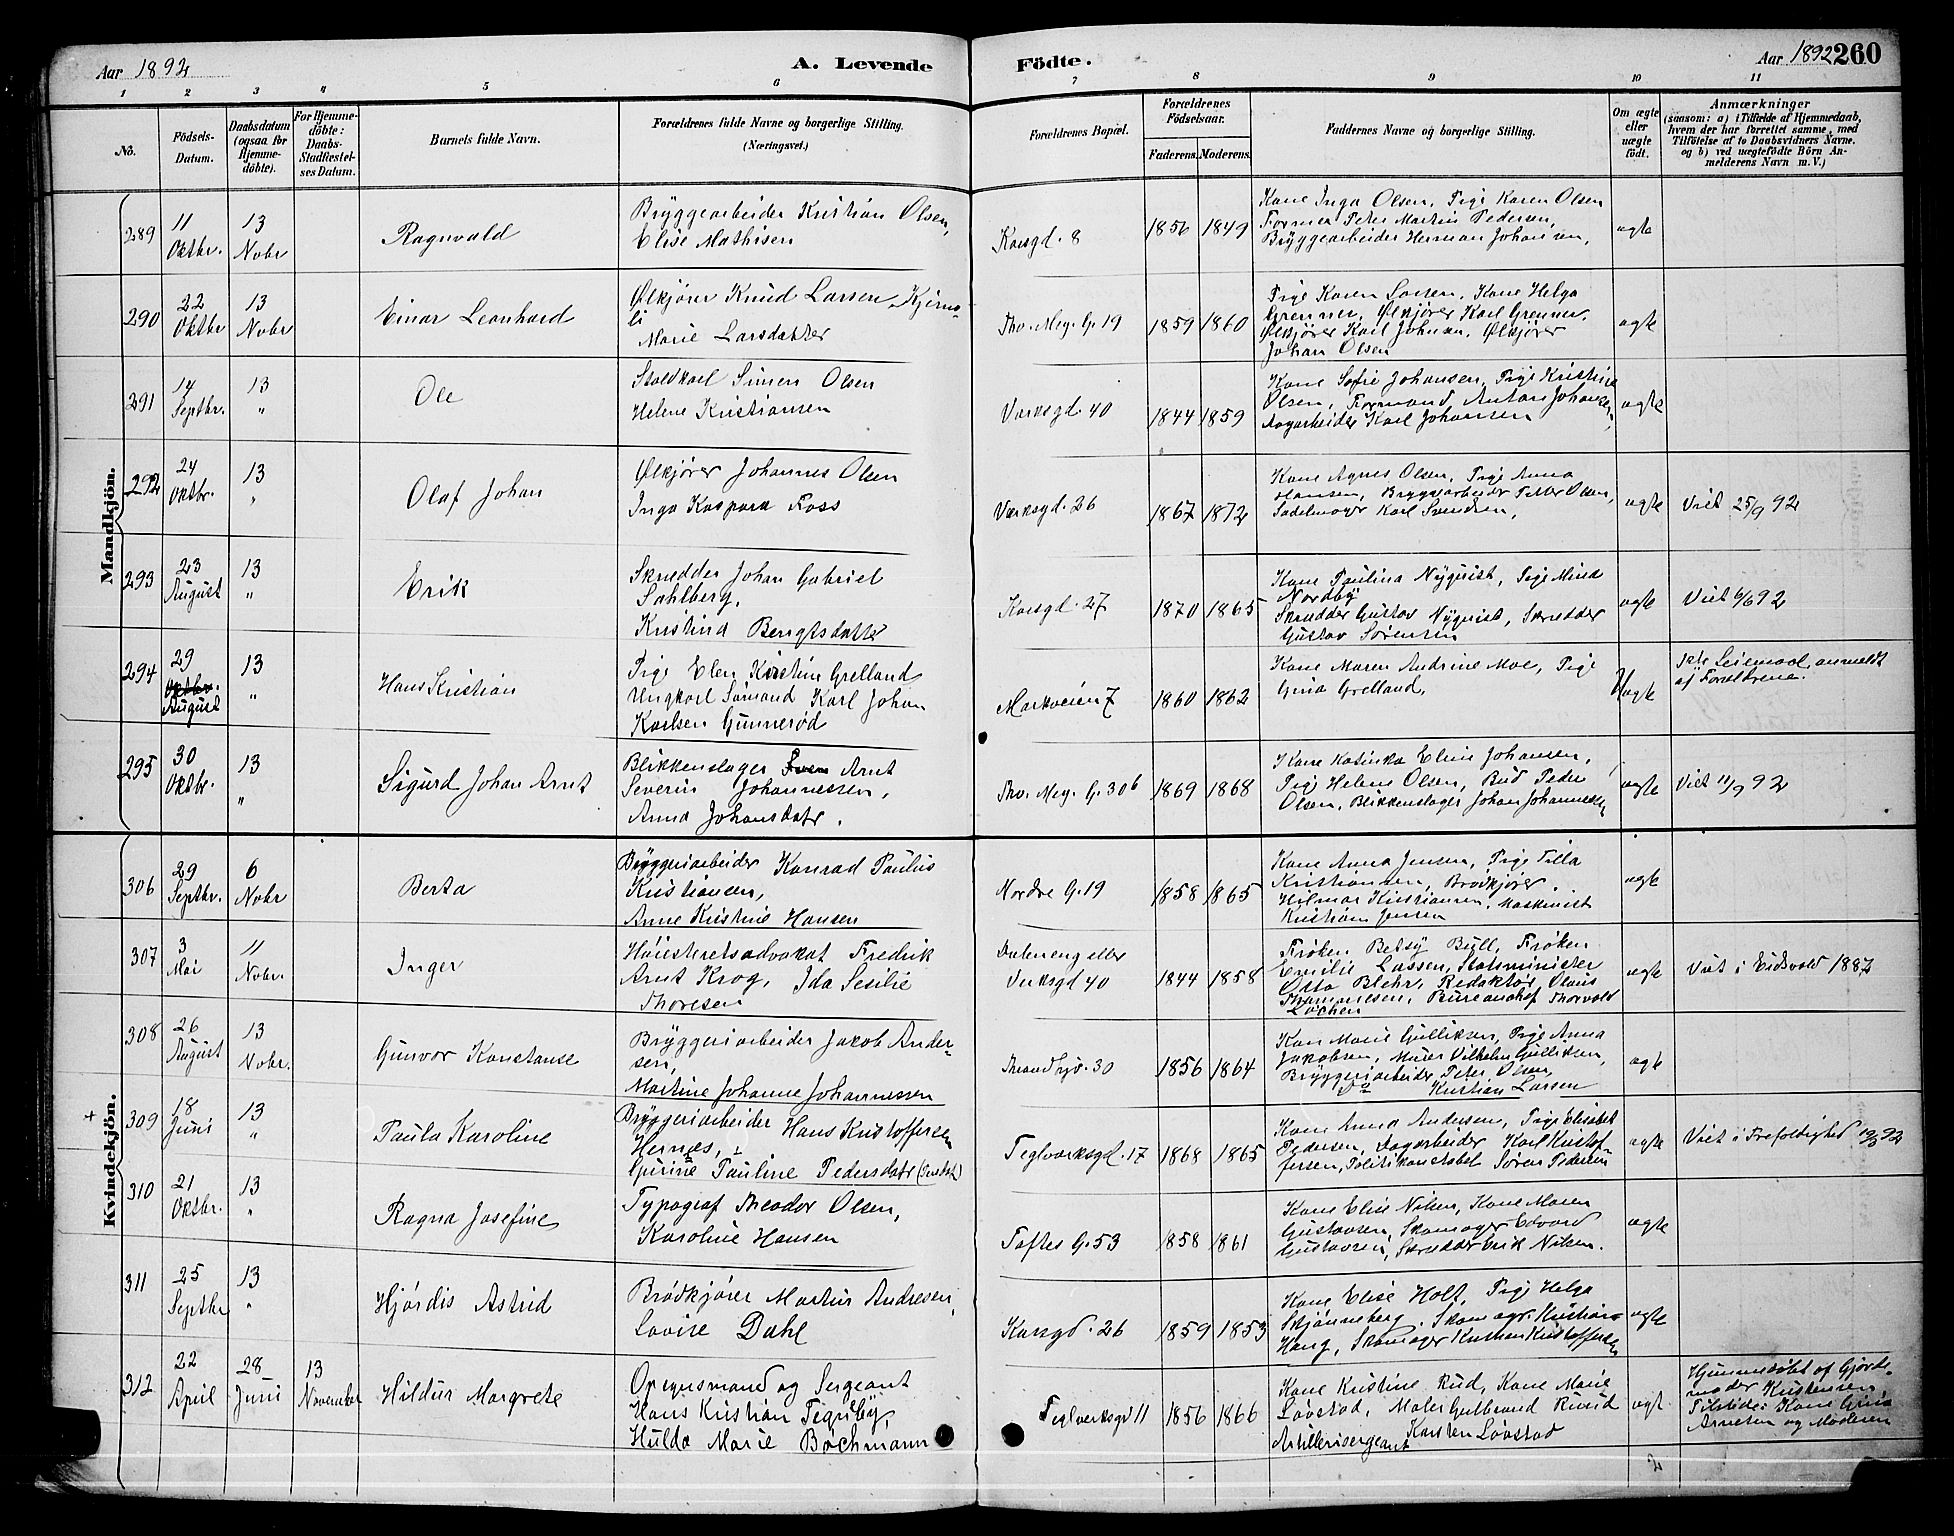 Aar 1892
A. Levende Födte.
Aar 1892 260
1 2 3 4 5 6 7 8 9 10 11
No.
Födsels-Datum.
Daabsdatum (ogsaa for Hjemmedöbte).
For Hjemmedöbte: Daabs-Stadfæstelses Datum.
Barnets fulde Navn.
Forældrenes fulde Navne og borgerlige Stilling. (Næringsvei.)
Forældrenes Bopæl.
Forældrenes Födselsaar.
Faderens. Moderens.
Faddernes Navne og borgerlige Stilling.
Om ægte eller uægte födt.
Anmærkninger (saasom: a) i Tilfælde af Hjemmedaab, hvem der har forrettet samme, med Tilföielse af to Daabsvidners Navne. og b) ved uægtefödte Börn Anmelderens Navn m. V.)
Mandkjön.
289 11 Oktbr. 13 Novbr Ragnvald
Bryggearbeider Kristian Olsen,
Elise Mathisen
Korsgd. 8 1856 1849
Kone Inga Olsen, Pige Karen Olsen
Former Peter Martin Pedersen,
Bryggearbeider Herman Johansen,
ægte
290 22 Oktbr 13 Nobr Einar Leonhard
Ølkjører Knud Larsen Kjerna-
li
Marie Larsdatter
Tho. Mey. G. 19 1859 1860
Pige Karen Larsen, Kone Helga
Grenner, Ølkjører Karl Grenner,
Ølkjører Karl Johnsen, Ølkjører
Johan Olsen
ægte
291 14 Septbr. 13 " Ole
Staldkarl Simen Olsen
Helene Kristiansen
Værksgd. 40 1844 1859
Kone Sofie Johansen, Pige Kristine
Olsen, Formand Anton Johansen,
Dagarbeider Karl Johansen
ægte
292 24 Oktbr. 13 " Olaf Johan
Ølkjører Johannes Olsen
Inga Kaspara Foss
Værksgd. 26 1867 1872
Kone Agnes Olsen, Pige Anna
Hansen, Bryggearbeider Petter Olsen,
Sadelmager Karl Svendsen,
ægte Viet 25/9 92
293 23 August 13 " Erik
Skrædder Johan Gabriel
Sahlberg,
Kristina Bengtsdatter
Korsgd. 27 1870 1865
Kone Paulina Nyquist, Pige Mina
Nordby
Skrædder Gustav Nyquist, Skrædder
Gustav Sørensen
ægte Viet 6/6 92
294 29 Oktbr. August 13 " Hans Kristian
Pige Elen Kirstine Grelland
Ungkarl Sømand Karl Johan
Karlsen Gunnerød
Markveien 7 1860 1862
Kone Maren Andrine Moe, Pige
Gina Grelland,
Uægte
1ste Leiermaal, anmeldt
af Forældrene.
295 30 Oktbr. 13 " Sigurd Johan Arnt
Blikkenslager Sven Arnt
Severin Johannessen,
Anna Johansdatr.
Tho. Mey. G. 30 b 1869 1868
Kone Katinka Eline Johansen,
Pige Helene Olsen, Bud Peder
Olsen, Blikkenslager Johan Johannessen
ægte Viet 11/9 92
Kvindekjön.
306 29 Septbr. 6 Nobr Berta
Bryggeriarbeider Konrad Paulus
Kristiansen,
Anne Kristine Hansen
Nordre G. 19 1858 1865
Kone Anna Jensen, Pige Tilla
Kristiansen, Brødkjører
Hilmar Kristiansen, Maskinist
Kristian Jensen
ægte
307 3 Mai 11 Nobr. Inger
Høiesteretsadvokat Fredrik
Arnt Krog, Ida Sesilie
Thoresen
Dælenengeller
Verksgd 40 1844 1858
Frøken Betsy Bull, Frøken
Emilie Lassen, Statsminister
Otto Blehr, Redaktør Olaus
Thommesen, Bureauchef Thorvald
Løchen
ægte Viet i Eidsvold 1887
308 26 August 13 Nobr. Gunvor Konstanse
Bryggeriarbeider Jakob Ander-
sen,
Martine Johanne Johannessen
Trondhjv. 30 1856 1864
Kone Marie Gulliksen, Pige Anna
Jakobsen, Murer Vilhelm Gulliksen,
Bryggeriarbeider Peter Olsen,
Do Kristian Larsen
ægte
+ 309 18 Juni 13 " Paula Karoline
Bryggeriarbeider Hans Kristoffersen
Hernæs,
Gurine Pauline Pedersdatr
Teglværksgd. 17 1868 1865
Kone Anna Andersen, Pige Elisabet
Pedersen, Dagarbeider Karl Kristof-
fersen, Politikonstabel Søren Pedersen
ægte Viet i Trefoldighed 92
310 21 Oktbr. 13 " Ragna Josefine
Typograf Theodor Olsen,
Karoline Hansen
Toftes G. 53 1858 1861
Kone Elise Nilsen, Kone Maren
Gustavsen, Skomager Edvard
Gustavsen, Skrædder Erik Nilsen.
ægte
311 25 Septbr 13 " Hjørdis Astrid
Brødkjører Martin Andresen,
Lovise Dahl
Korsgd. 26 1859 1853
Kone Elise Holt, Pige Helga
Skjønneberg, Skomagr. Kristian
Haug, Skomager Kristian Kristoffersen
ægte
312 22 April 28 Juni 13 November Hildur Margrete
Opsynsmand og Sergeant
Hans Kristian Tegneby,
Hulda Marie Bochmann
Teglverksgd 11 1856 1866
Kone Kristine Rud, Kone Marie
Løvstad, Maler Gulbrand Ruud
Artillerisergeant Karsten Løvstad
ægt.
Hjemmedøbt af Gjord-
moder Kristensen
Tilstede: Kone Gina
Arnesen og Moderen